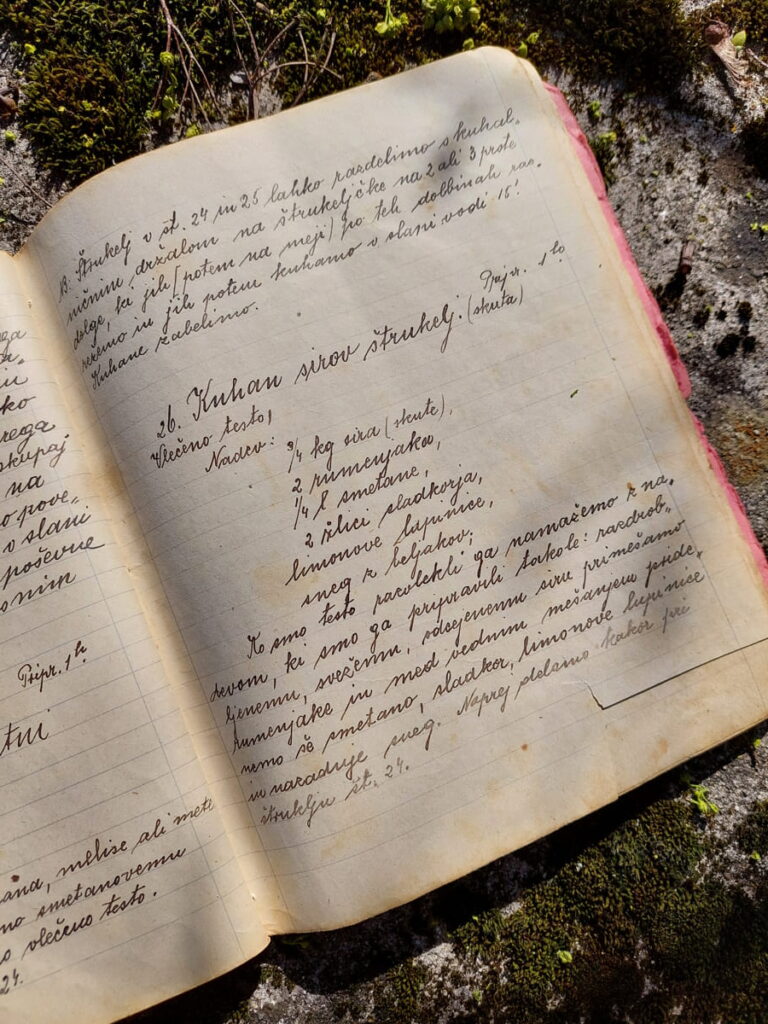 ega
ko
rega
skupaj
na
o pove-
v slani
poševne
Pripr. 1 h
ana, melise ali mete
no smetanovemu
o vlečeno testo.
24.
B. Štrukelj v št. 24 in 25 lahko razdelimo s kuhal-
ničnim držalom na štrukeljčke na 2 ali 3 prste
dolge, ki jih (potem na meji) po teh dolbinah raz-
režemo in jih potem kuhamo v slani vodi 15'.
Kuhane zabelimo.
Pripr. 1 h
26. Kuhan sirov štrukelj. (skuta)
Vlečeno testo,
Nadev: 3/4 kg sira (skute),
2 rumenjakov,
1/4 l smetane,
2 žlici sladkorja,
limonove lupinice,
sneg z beljakov;
Ko smo testo razvlekli ga namažemo z na-
devom, ki smo ga pripravili takole: razdrob-
ljenemu, svežemu, odcejenemu siru primešamo
rumenjake in med vednim mešanjem pride-
nemo še smetano, sladkor, limonove lupinice
in nazadnje sneg. Naprej delamo kakor pri
štruklju št. 24.